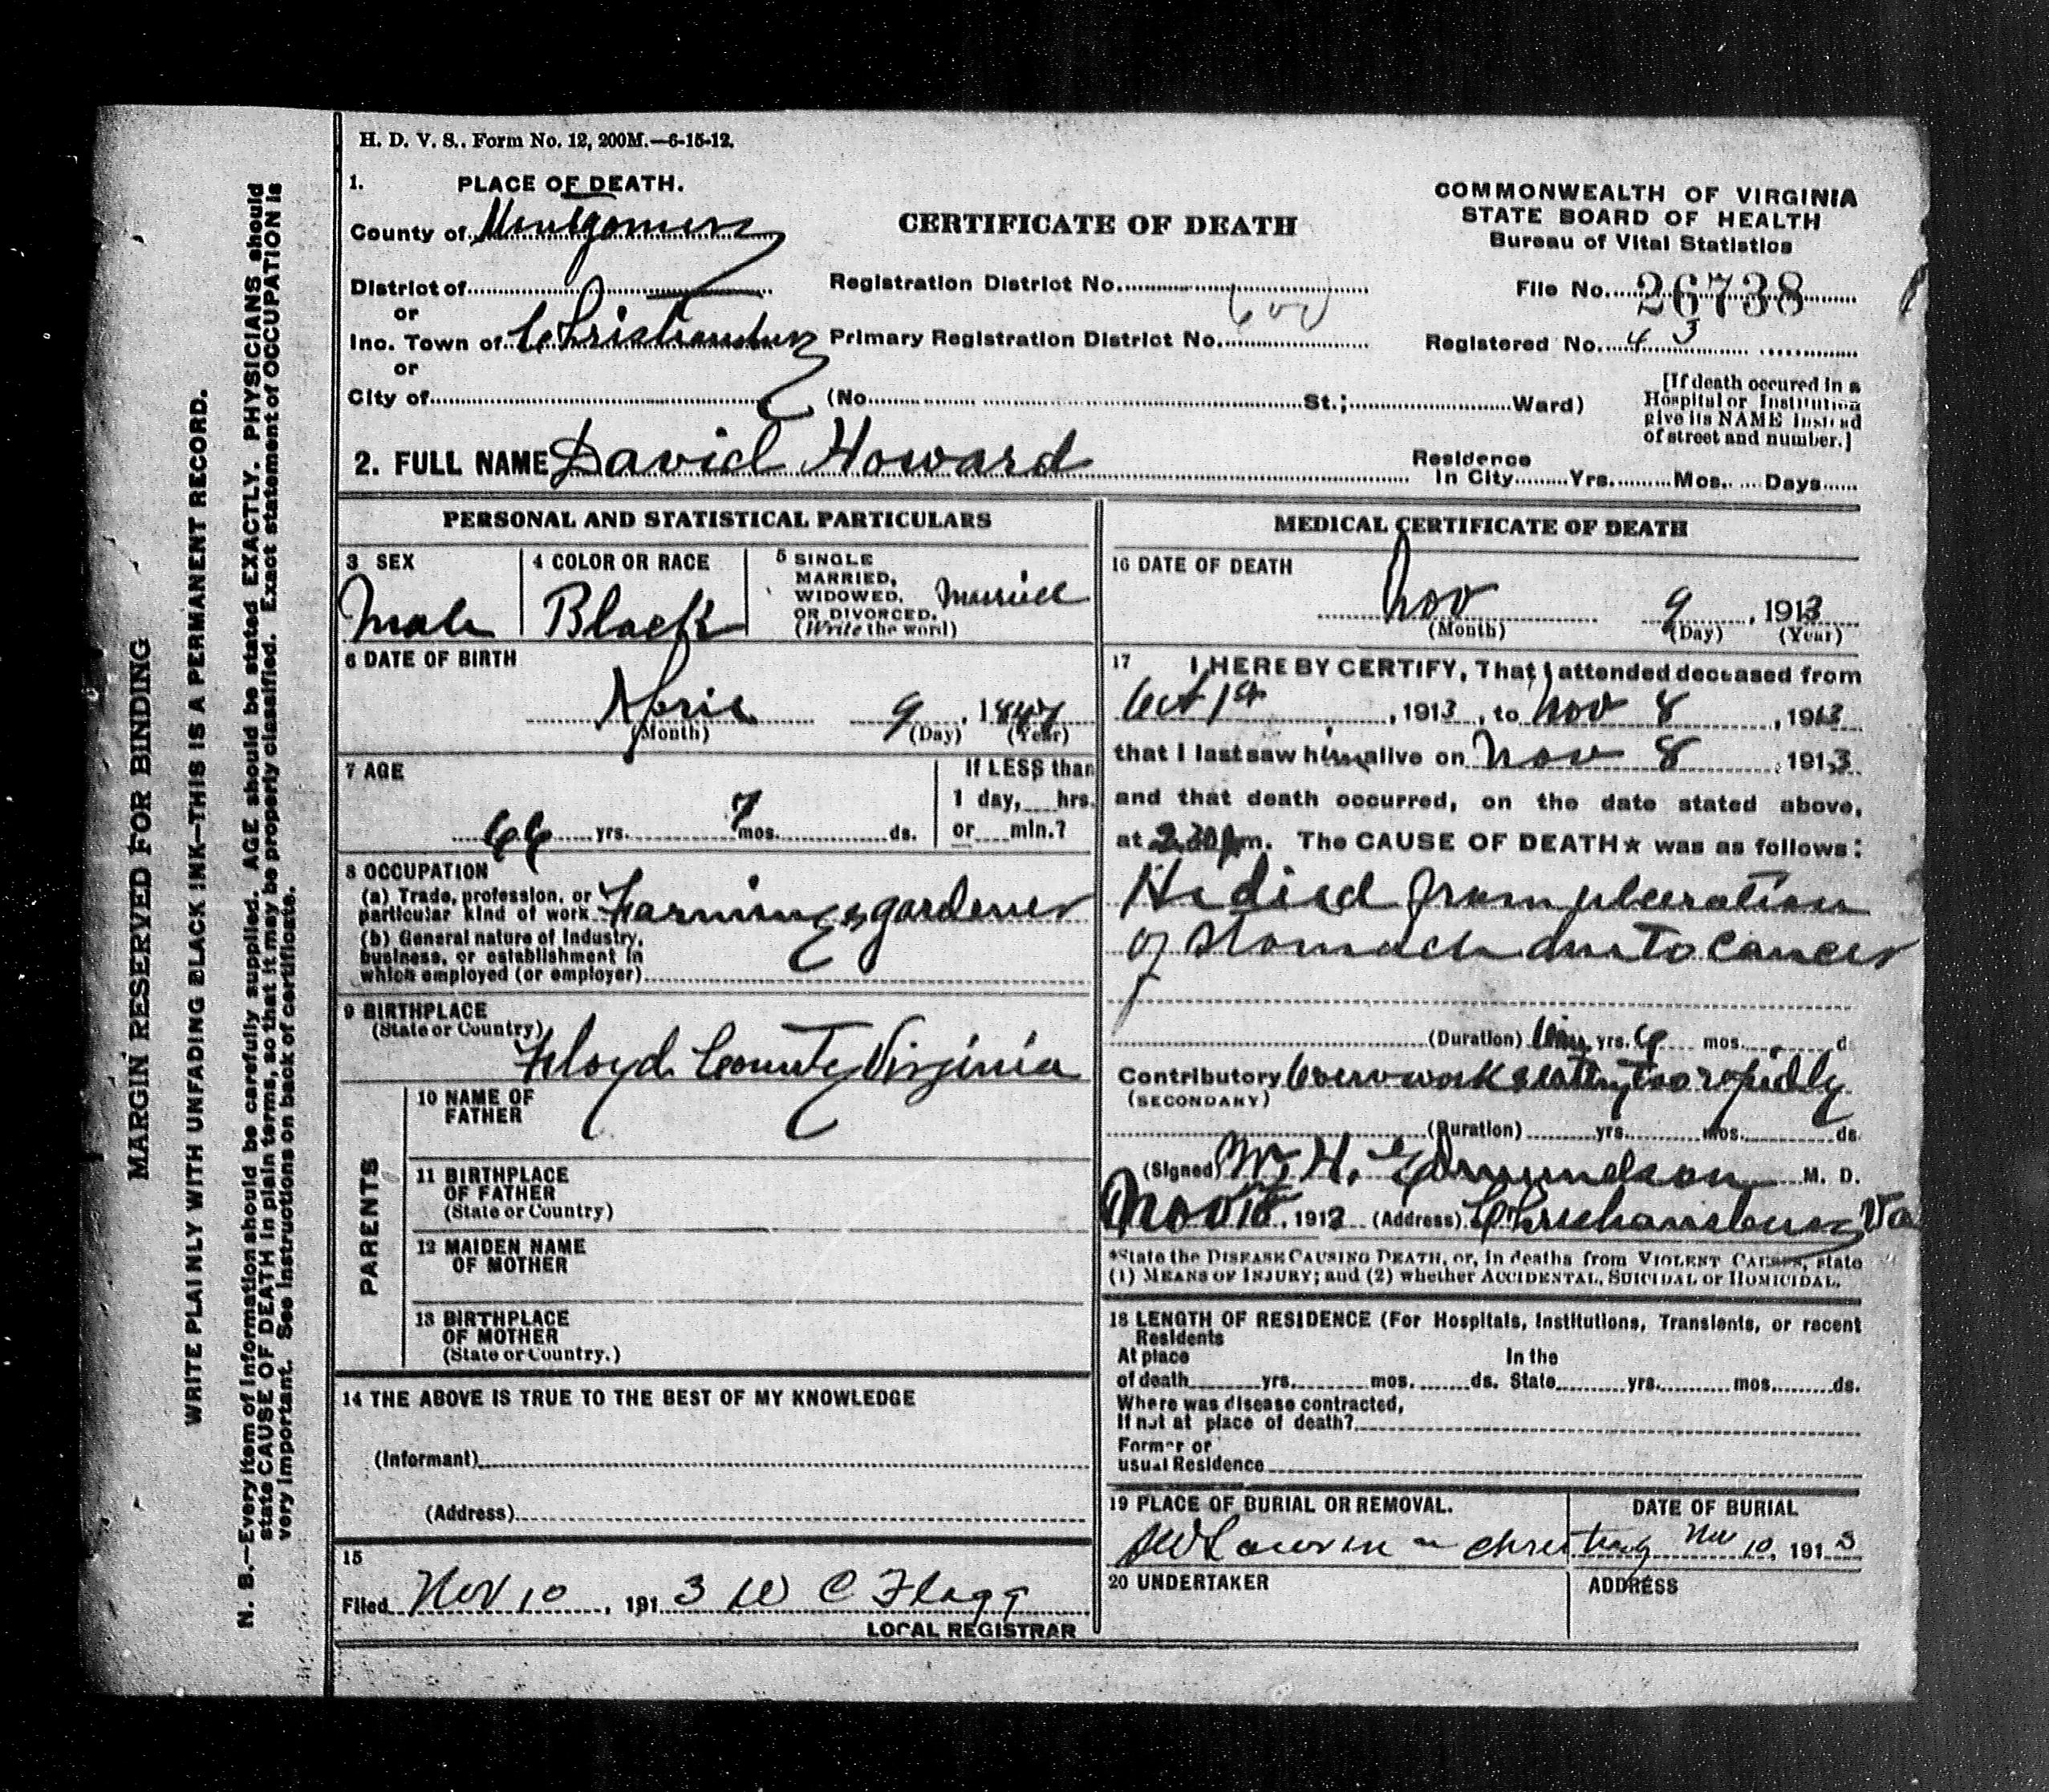 H. D. V. S. Form No. 12, 200M.—6-15-12.
1. PLACE OF DEATH.
County of Montgomery
District of
or
Inc. Town of Christiansburg
or
City of
CERTIFICATE OF DEATH
Registration District No.
Primary Registration District No. 600
(No. St.; Ward)
COMMONWEALTH OF VIRGINIA
STATE BOARD OF HEALTH
Bureau of Vital Statistics
File No. 26738
Registered No. 43
[If death occured in a
Hospital or Institution
give its NAME instead
of street and number.]
2. FULL NAME David Howard
Residence
In City Yrs. Mos. Days
PERSONAL AND STATISTICAL PARTICULARS
3 SEX
Male
4 COLOR OR RACE
Black
5 SINGLE
MARRIED,
WIDOWED,
OR DIVORCED.
(Write the word)
Married
6 DATE OF BIRTH
April 9, 1847
(Month) (Day) (Year)
7 AGE
66 yrs. 7 mos. ds.
If LESS than
1 day, hrs.
or min.?
8 OCCUPATION
(a) Trade, profession, or
particular kind of work Farming & gardener
(b) General nature of Industry,
business, or establishment in
which employed (or employer)
9 BIRTHPLACE
(State or Country)
Floyd County Virginia
PARENTS
10 NAME OF
FATHER
11 BIRTHPLACE
OF FATHER
(State or Country)
12 MAIDEN NAME
OF MOTHER
13 BIRTHPLACE
OF MOTHER
(State or Country.)
14 THE ABOVE IS TRUE TO THE BEST OF MY KNOWLEDGE
(Informant)
(Address)
15
Filed Nov 10, 1913 W C Flagg
LOCAL REGISTRAR
MEDICAL CERTIFICATE OF DEATH
16 DATE OF DEATH
Nov 9, 1913
(Month) (Day) (Year)
17 I HEREBY CERTIFY, That I attended deceased from
Oct 1st, 1913, to Nov 8, 1913
that I last saw him alive on Nov 8, 1913
and that death occurred, on the date stated above,
at 2.30 pm. The CAUSE OF DEATH* was as follows:
He died from ulceration
of stomach due to cancer
(Duration) yrs. mos. d
Contributory Overwork & eating too rapidly
(SECONDARY)
(Duration) yrs. mos. ds.
(Signed) W. H. Edmundson M. D.
Nov 10, 1913 (Address) Christiansburg Va
*State the DISEASE CAUSING DEATH, or, in deaths from VIOLENT CAUSES, state
(1) MEANS OF INJURY; and (2) whether ACCIDENTAL, SUICIDAL or HOMICIDAL.
18 LENGTH OF RESIDENCE (For Hospitals, Institutions, Transients, or recent
Residents
At place
of death yrs. mos. ds.
In the
State yrs. mos. ds.
Where was disease contracted,
If not at place of death?
Former or
usual Residence
19 PLACE OF BURIAL OR REMOVAL.
DATE OF BURIAL
Nov 10, 1913
20 UNDERTAKER
ADDRESS
MARGIN RESERVED FOR BINDING
WRITE PLAINLY WITH UNFADING BLACK INK—THIS IS A PERMANENT RECORD.
N. B.—Every item of information should be carefully supplied. AGE should be stated EXACTLY. PHYSICIANS should
state CAUSE OF DEATH in plain terms, so that it may be properly classified. Exact statement of OCCUPATION is
very important. See instructions on back of certificate.